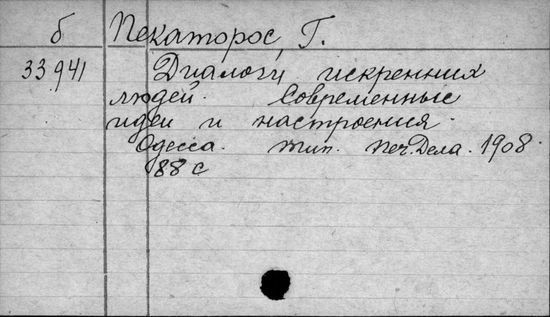 б Пекаторос, Г.
33941 Диалоги искренних
людей. Современные
идеи и настроения.
Одесса. тип. Печ. Дела. 1908.
88 с